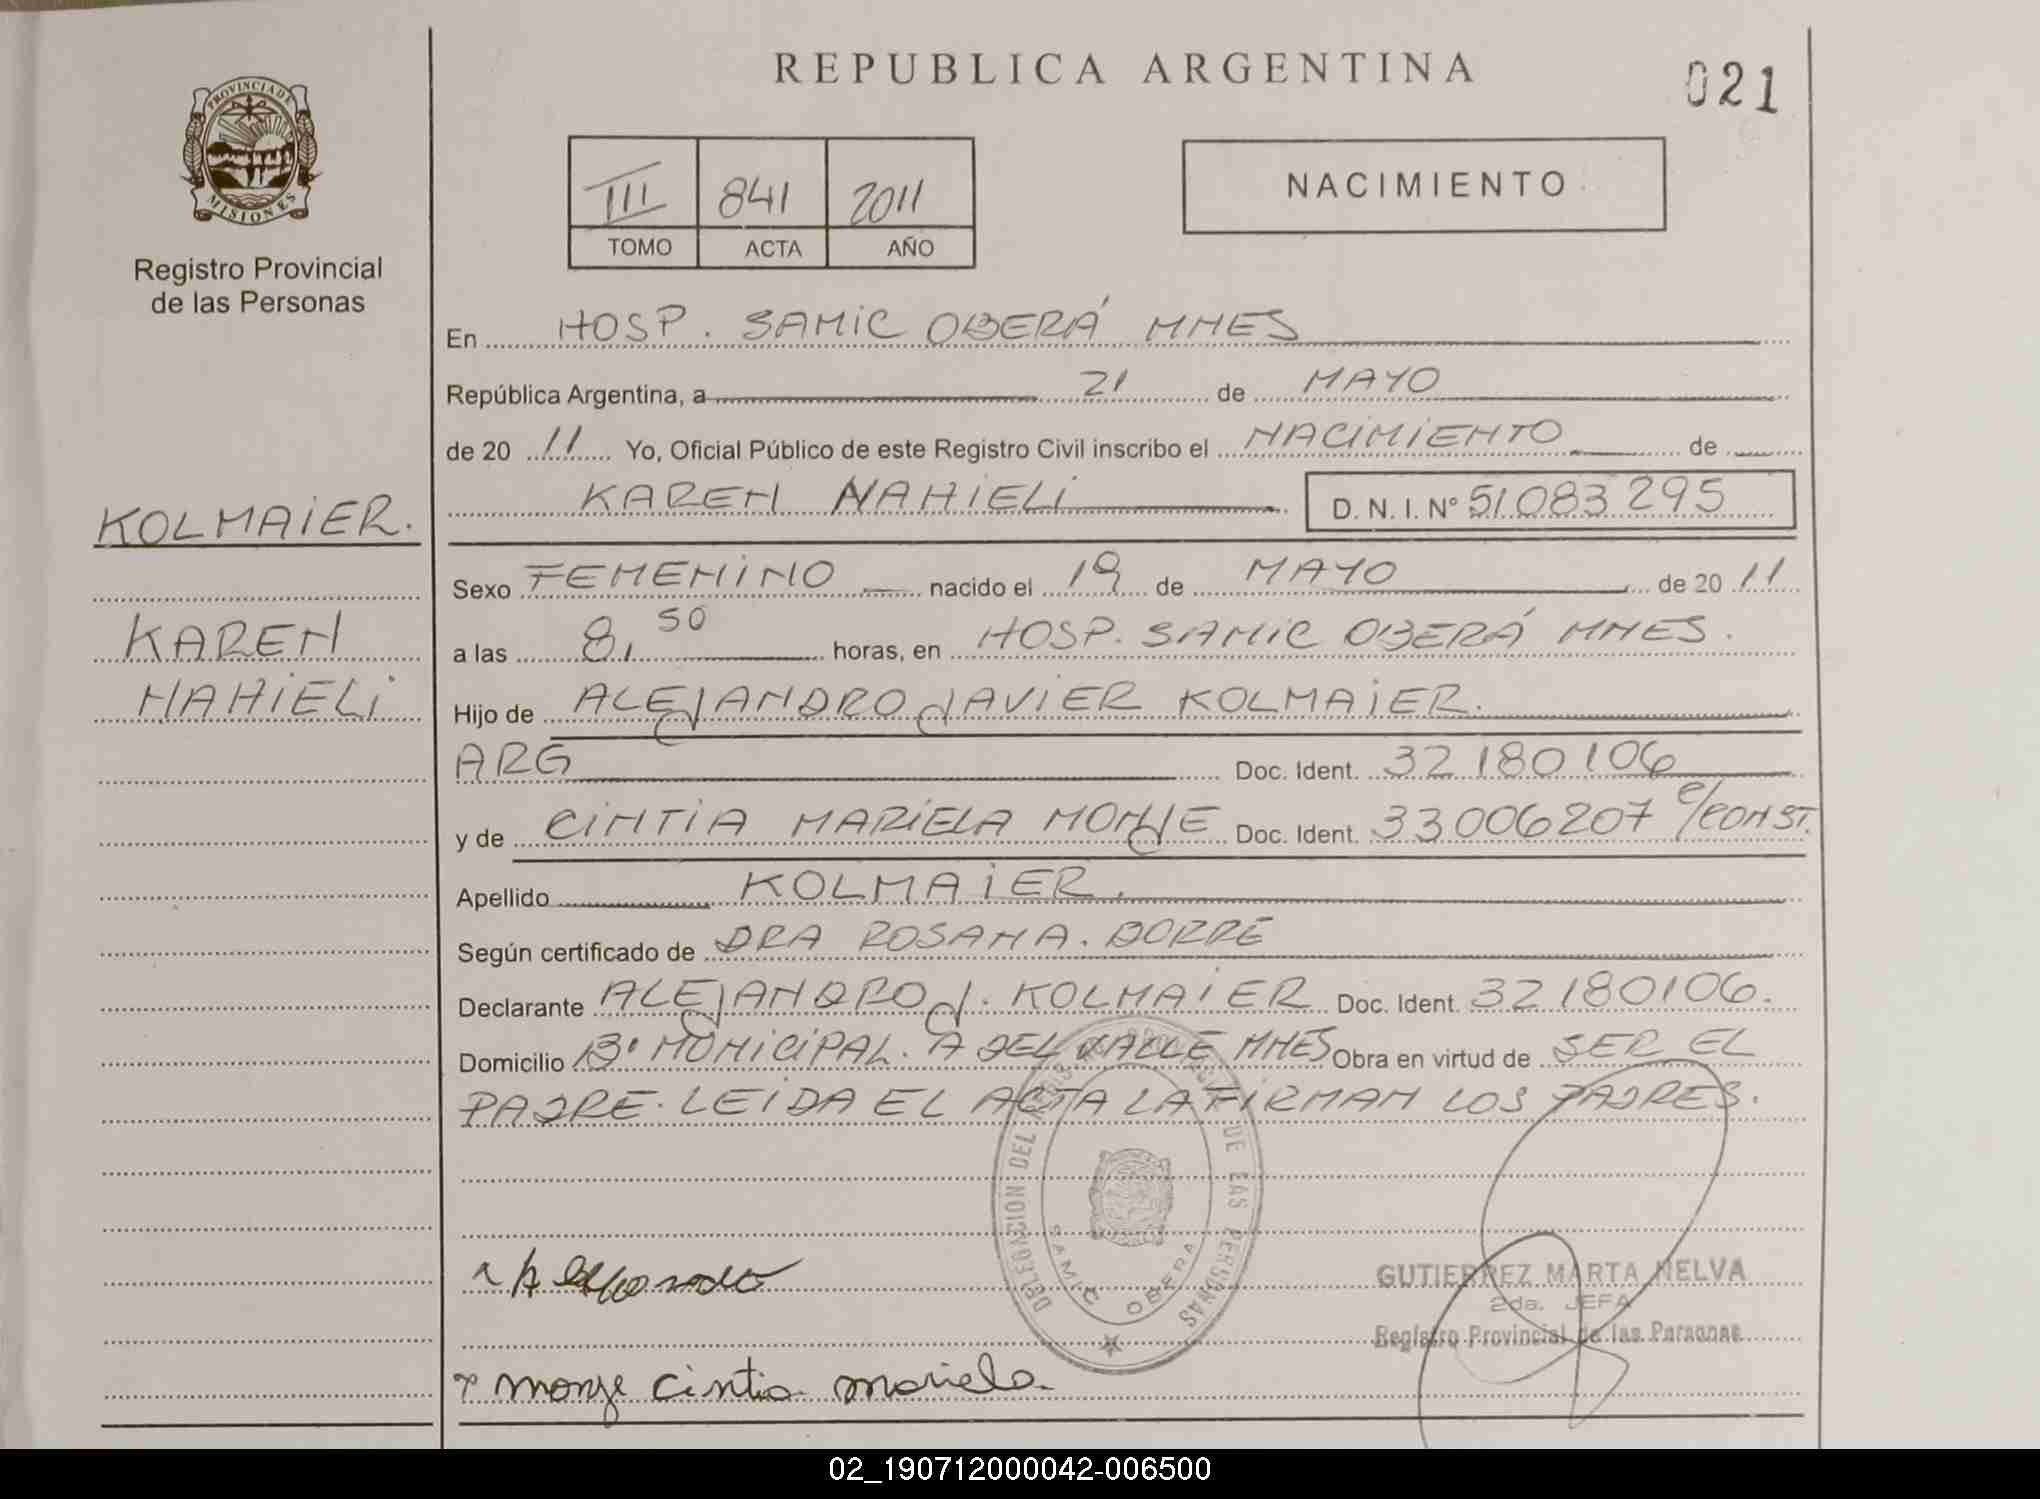 REPUBLICA ARGENTINA
021
PROVINCIA DE
MISIONES
Registro Provincial
de las Personas
III 841 2011
TOMO ACTA AÑO
NACIMIENTO
En HOSP. SAMIC OBERÁ MNES
República Argentina, a 21 de MAYO
de 20 11 Yo, Oficial Público de este Registro Civil inscribo el NACIMIENTO de
KAREN NAHIELI D. N. I. Nº 51083295
KOLMAIER.
KAREN
NAHIELI
Sexo FEMENINO nacido el 19 de MAYO de 20 11
a las 8,50 horas, en HOSP. SAMIC OBERÁ MNES.
Hijo de ALEJANDRO JAVIER KOLMAIER.
ARG Doc. Ident. 32180106
y de CINTIA MARIELA MONJE Doc. Ident. 33006207 C/CONST.
Apellido KOLMAIER.
Según certificado de DRA ROSANA. BORRE
Declarante ALEJANDRO J. KOLMAIER Doc. Ident. 32180106.
Domicilio Bº MUNICIPAL. A DEL VALLE MNES Obra en virtud de SER EL
PADRE. LEIDA EL ACTA LA FIRMAN LOS PADRES.
DELEGACION DEL REGISTRO PROVINCIAL DE LAS PERSONAS
SAMIC OBERA
GUTIERREZ MARTA NELVA
2da. JEFA
Registro Provincial de las Personas
Monje Cintia Mariela.
02_190712000042-006500